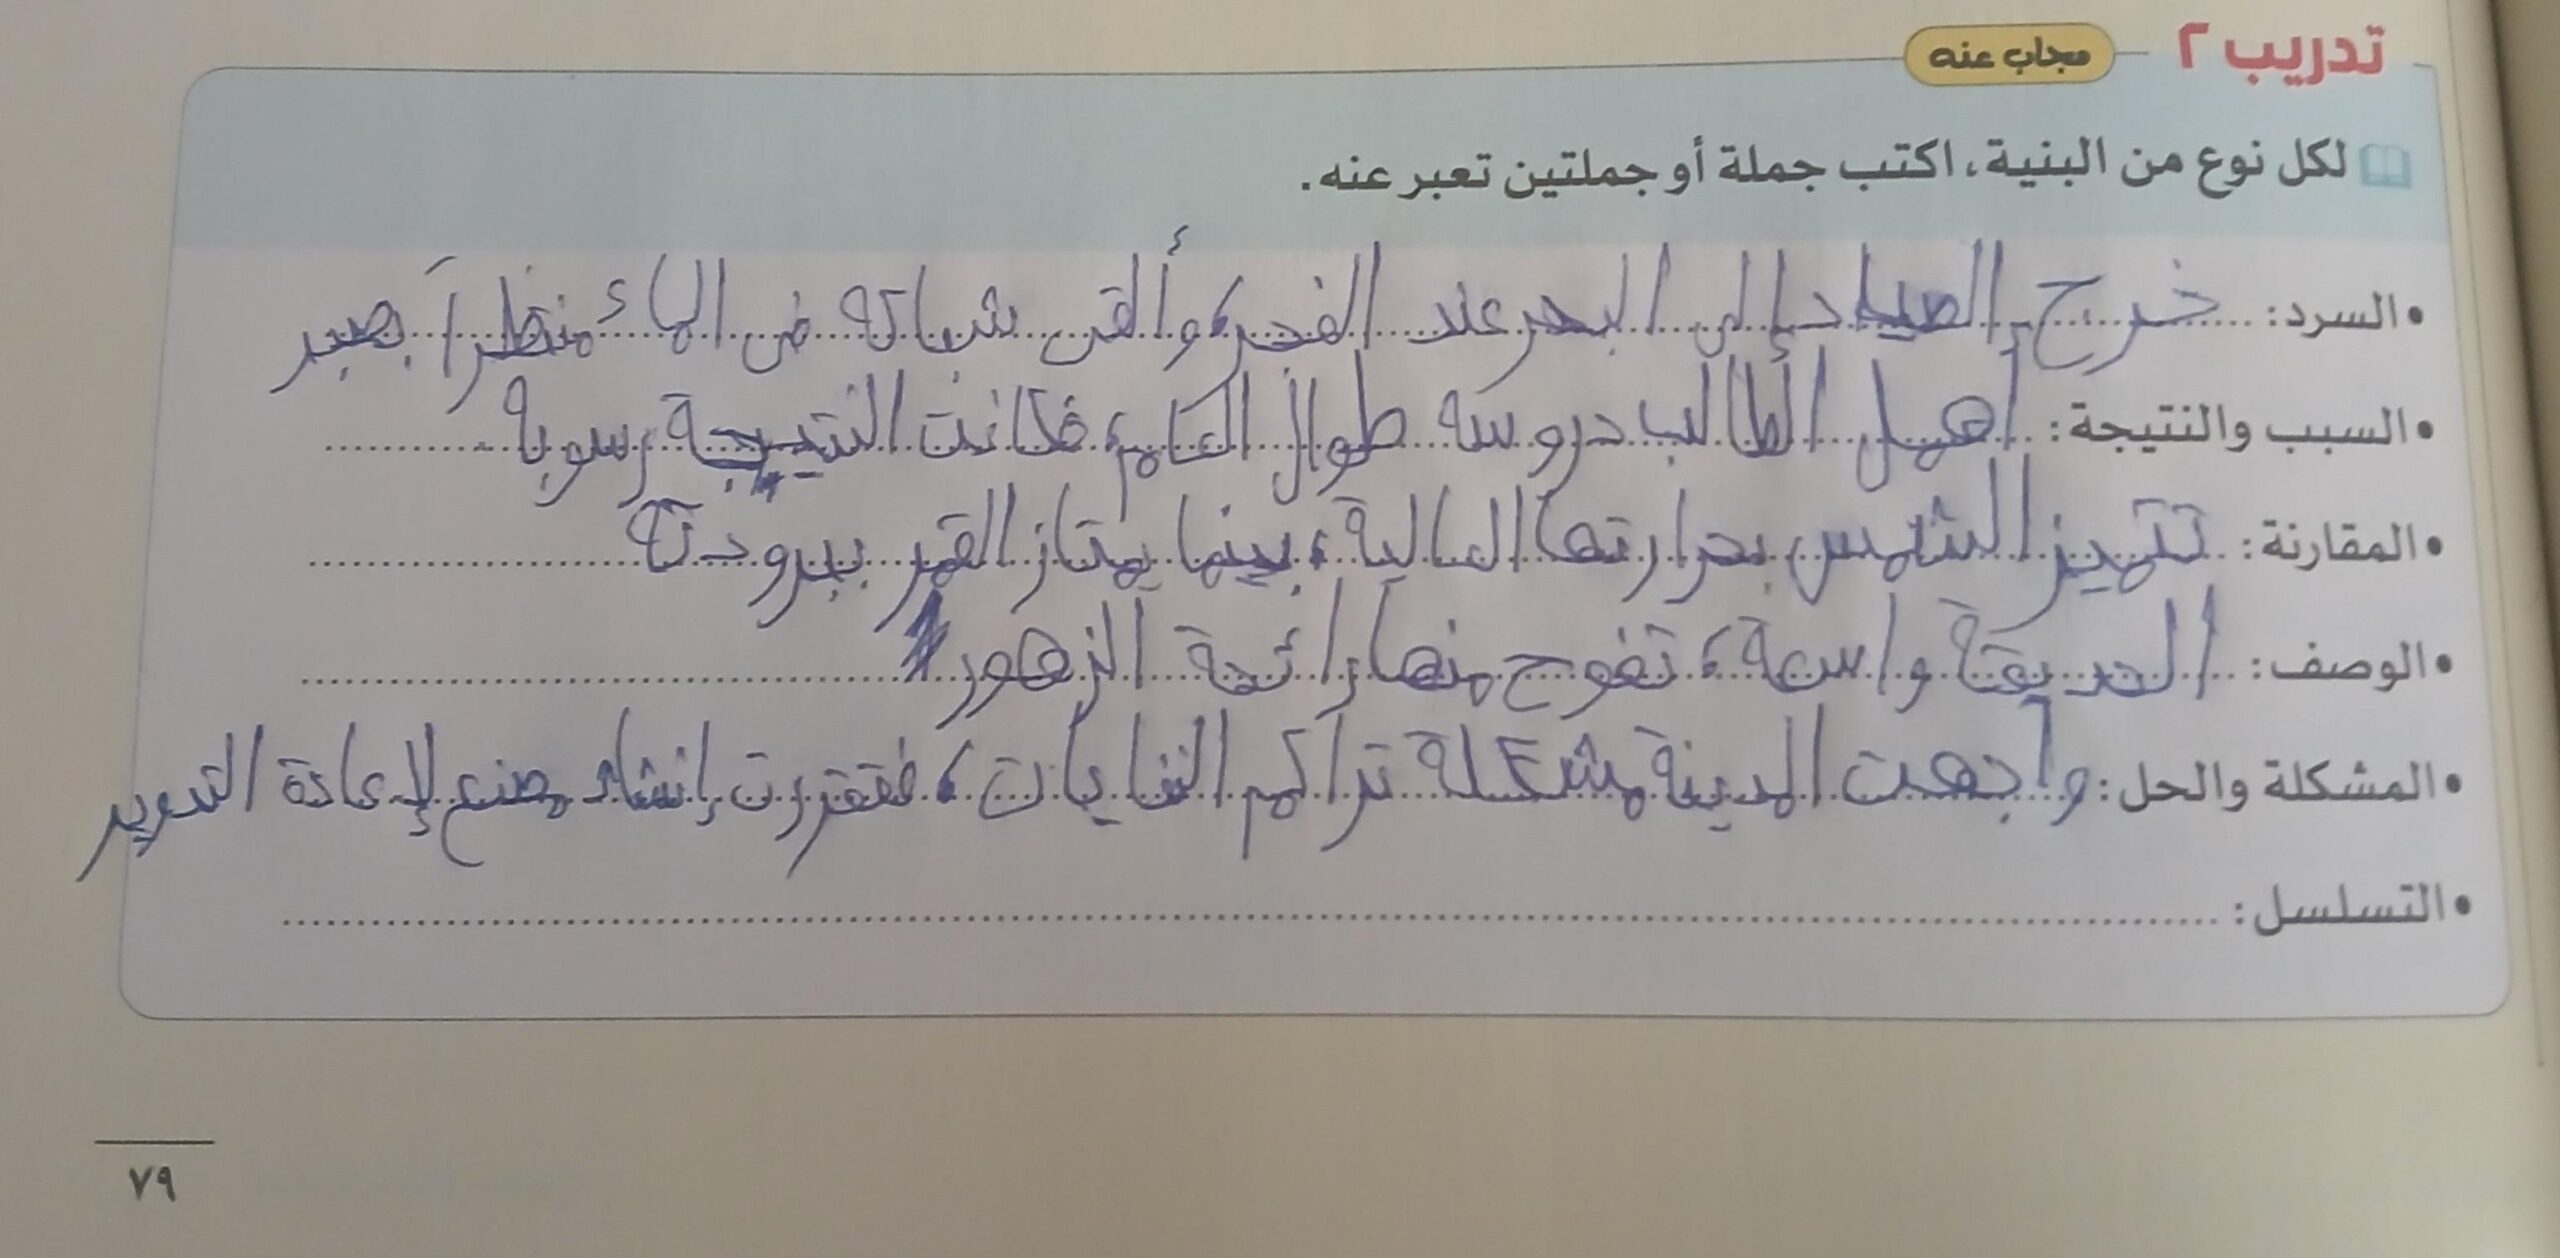 تدريب ٢ مجاب عنه
لكل نوع من البنية، اكتب جملة أو جملتين تعبر عنه.
• السرد: خرج الصياد إلى البحر عند الفجر، وألقى شباكه في الماء منتظرًا بصبر
• السبب والنتيجة: أهمل الطالب دروسه طوال العام، فكانت النتيجة رسوبه
• المقارنة: تتميز الشمس بحرارتها العالية، بينما يمتاز القمر ببرودته
• الوصف: الحديقة واسعة، تفوح منها رائحة الزهور
• المشكلة والحل: واجهت المدينة مشكلة تراكم النفايات، فقررت إنشاء مصنع لإعادة التدوير
• التسلسل:
٧٩